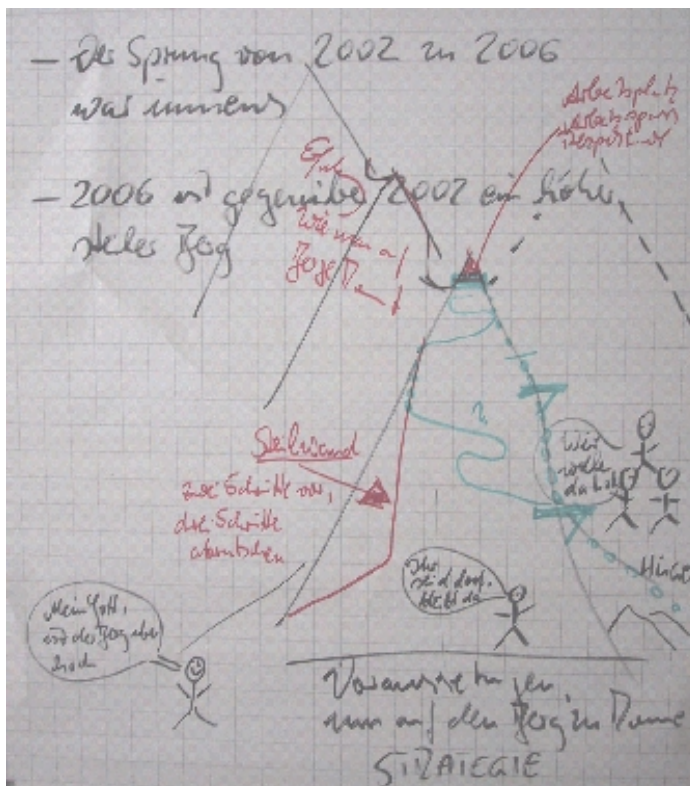 – Der Sprung von 2002 zu 2006
war immens
– 2006 ist gegenüber 2002 ein hoher,
steiler Berg
Arbeitsplatz
Wie man
Steilwand
zwei Schritte vor,
drei Schritte
abrutschen
?
Wir
wolle
da hoch
Ihr
seid doof,
bleibt da
Mein Gott,
ist der Berg aber
hoch
Voraussetzungen,
um auf den Berg zu komme
STRATEGIE